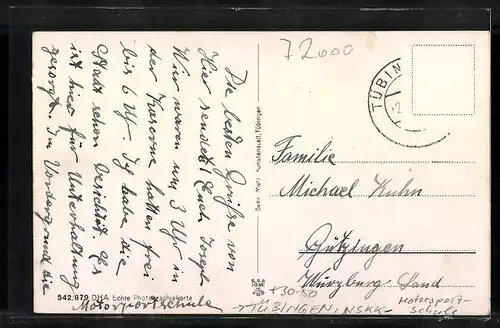 Die besten Grüße von
Hier sendet Euch Joseph
Wir waren um 3 Uhr in
der Kaserne hatten frei
bis 6 Uhr. Ich habe die
Stadt schon besichtet. Es
ist hier für Unterhaltung
gesorgt. Im Vordergrund die
Motorsportschule
542/879 DHA Echte Photographiekarte
Gebr. Metz Kunstanstalt, Tübingen
72000
TÜBIN
Familie
Michael Kuhn
Gützingen
Würzburg Land
+30-50
→TÜBINGEN NSKK-
Motorsport-
Schule